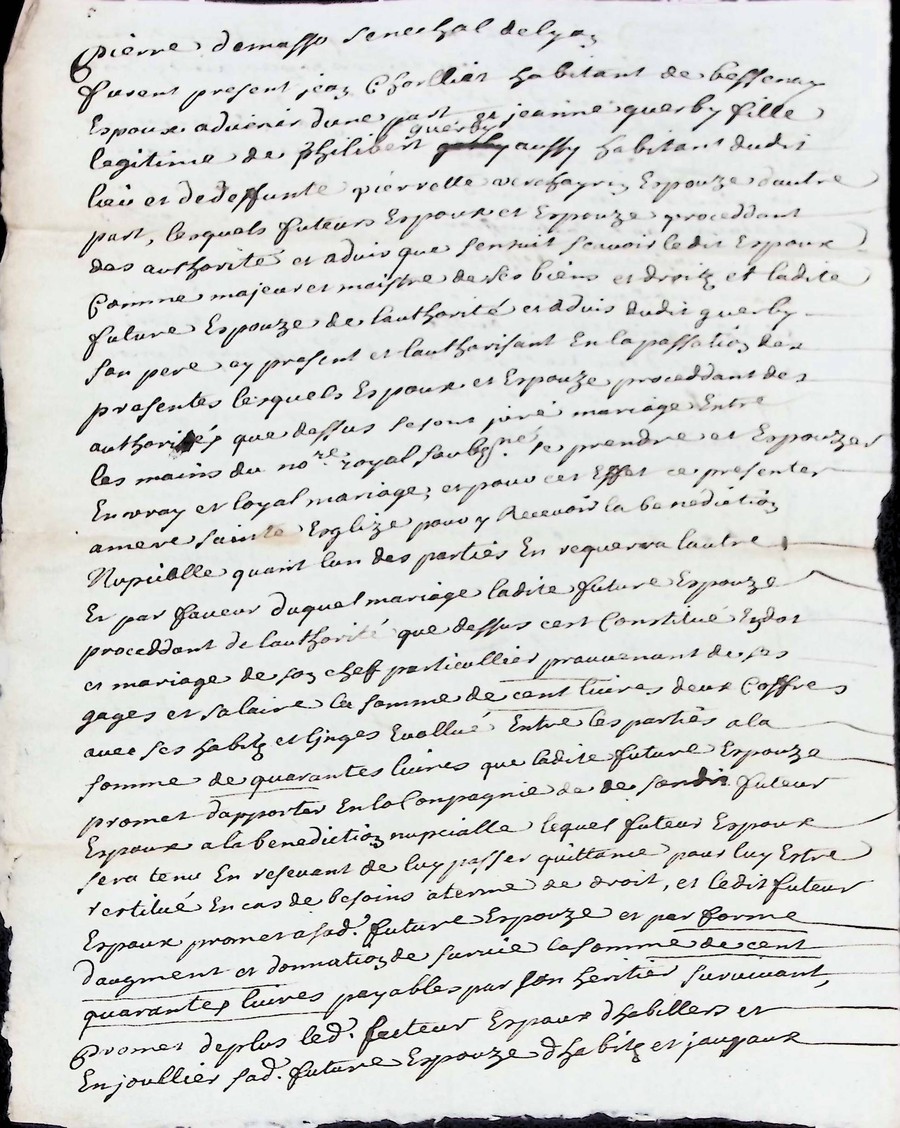 Pierre demasso seneschal delyon
furent present jean Cholliat habitant de bessenay
Espoux advenir dune part et jeanne guerby fille
legitime de philibert guerby aussy habitant dudit
lieu et dedeffunte pierrette Espouze dautre
part, lesquels futeurs Espoux et Espouze proceddant
des authorité et advis que sensuit scavoir ledit Espoux
Comme majeur et maistre de ses biens et droitz et ladite
future Espouze de lauthorité et advis dudit guerby
son pere cy present et lauthorisant En la passation des
presentes lesquels Espoux et Espouze proceddant des
authorités que dessus se sont juré mariage Entre
les mains du no.re royal soubs.né se prendre et Espouzer
En vray et loyal mariage, et pour cet Effet ce presenter
a mere sainte Esglize pour y Recevoir la benediction
Nupcialle quant lun des parties En requerra lautre
Et par faveur duquel mariage ladite future Espouze
proceddant de lauthorité que dessus cest Constitué Endot
et mariage de son chef particullier prouvenant de ses
gages et salaire la somme de cent livres deux Coffres
avec ses habitz et linges Evallué Entre les parties a la
somme de quarantes livres que ladite future Espouze
promet dapporter En la Conpagnie de de sondit futeur
Espoux a la benediction nupcialle lequel futeur Espoux
sera tenu En resevant de luy passer quittance pour luy Estre
restitué En cas de besoins a terme de droit, et ledit futeur
Espoux promet a sad.e future Espouze et par forme
daugment et donnation de survie la somme de cent
quarantes livres payables par son heritier survivant,
Promet deplus led. futeur Espoux dhabillers et
Enjoullier sad. future Espouze dhabitz et jouyaux